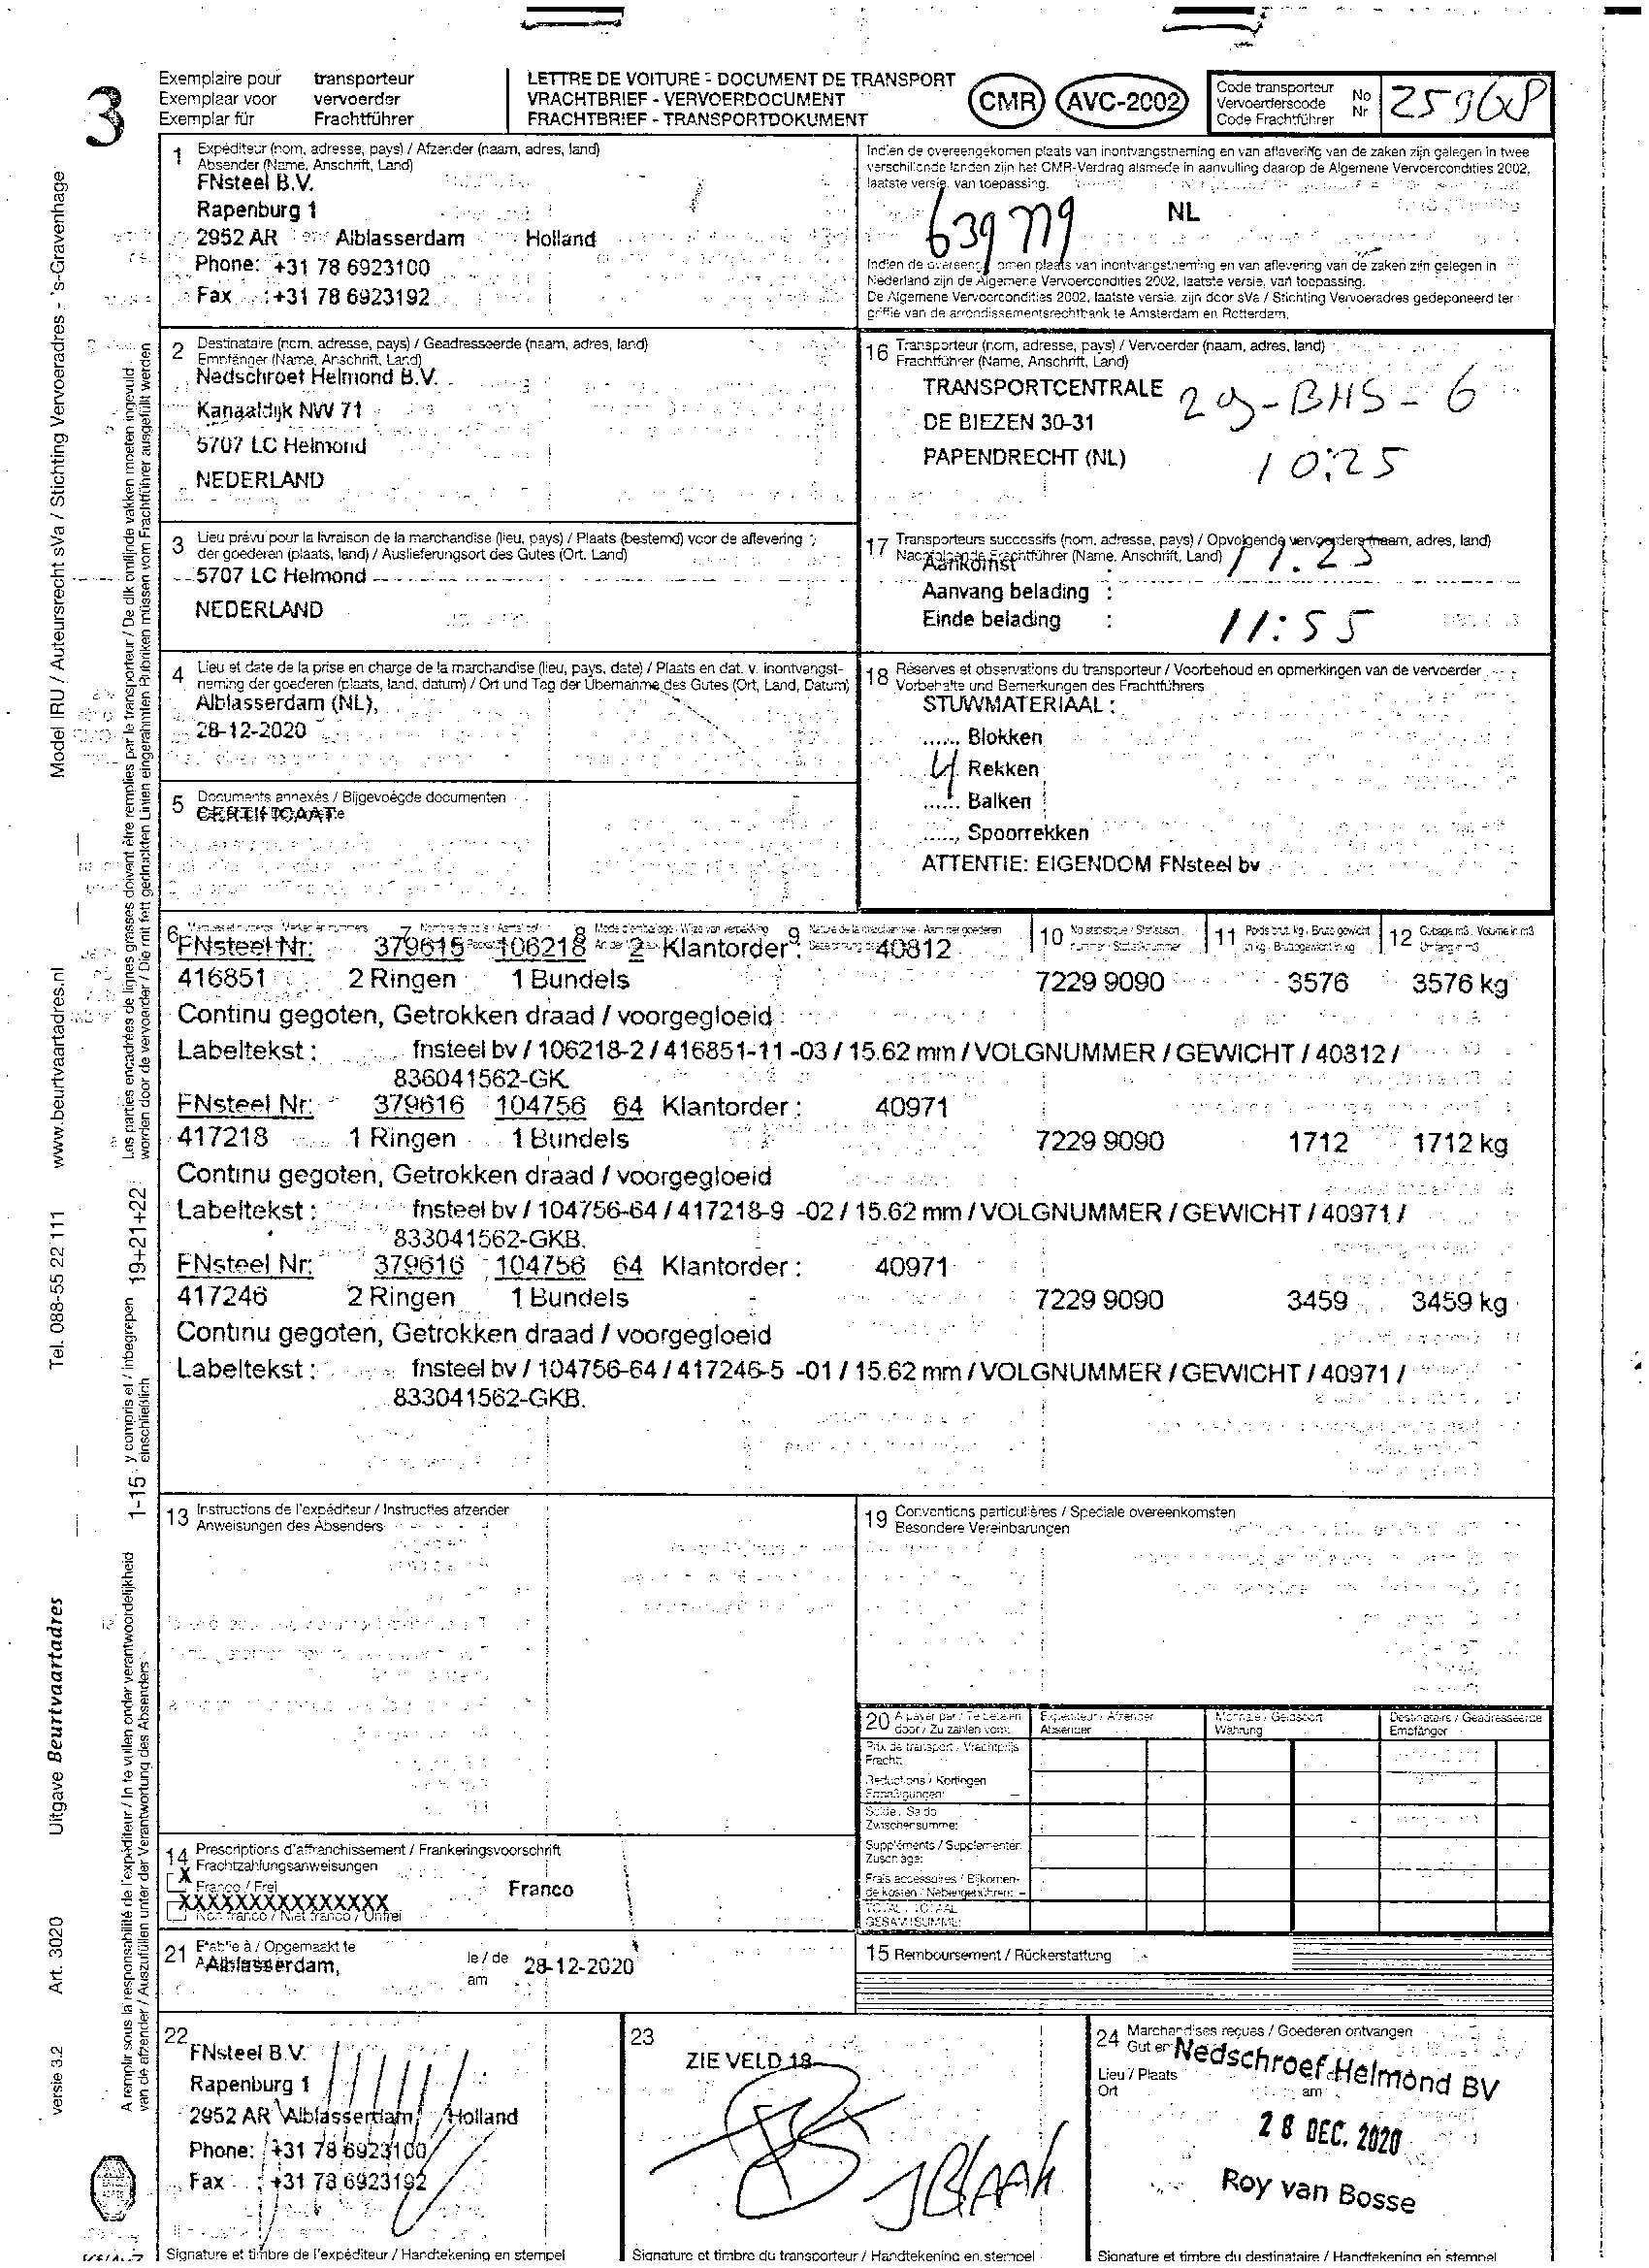 3
Exemplaire pour transporteur
Exemplaar voor vervoerder
Exemplar für Frachtführer
LETTRE DE VOITURE - DOCUMENT DE TRANSPORT
VRACHTBRIEF - VERVOERDOCUMENT
FRACHTBRIEF - TRANSPORTDOKUMENT
CMR AVC-2002
Code transporteur
Vervoerderscode
Code Frachtführer
No
Nr
25968
1 Expéditeur (nom, adresse, pays) / Afzender (naam, adres, land)
Absender (Name, Anschrift, Land)
FNsteel B.V.
Rapenburg 1
2952 AR Alblasserdam Holland
Phone: +31 78 6923100
Fax : +31 78 6923192
Indien de overeengekomen plaats van inontvangstneming en van aflevering van de zaken zijn gelegen in twee
verschillende landen zijn het CMR-Verdrag alsmede in aanvulling daarop de Algemene Vervoercondities 2002,
laatste versie, van toepassing.
639779 NL
Indien de plaats van inontvangstneming en van aflevering van de zaken zijn gelegen in
Nederland zijn de Algemene Vervoercondities 2002, laatste versie, van toepassing.
De Algemene Vervoercondities 2002, laatste versie, zijn door sVa / Stichting Vervoeradres gedeponeerd ter
griffie van de arrondissementsrechtbank te Amsterdam en Rotterdam.
2 Destinataire (nom, adresse, pays) / Geadresseerde (naam, adres, land)
Empfänger (Name, Anschrift, Land)
Nedschroef Helmond B.V.
Kanaaldijk NW 71
5707 LC Helmond
NEDERLAND
16 Transporteur (nom, adresse, pays) / Vervoerder (naam, adres, land)
Frachtführer (Name, Anschrift, Land)
TRANSPORTCENTRALE
DE BIEZEN 30-31
PAPENDRECHT (NL)
29-BHS-6
10:25
3 Lieu prévu pour la livraison de la marchandise (lieu, pays) / Plaats (bestemd) voor de aflevering
der goederen (plaats, land) / Auslieferungsort des Gutes (Ort, Land)
5707 LC Helmond
NEDERLAND
17 Transporteurs successifs (nom, adresse, pays) / Opvolgende vervoerders (naam, adres, land)
Nachfolgende Frachtführer (Name, Anschrift, Land)
Aankomst : 11.25
Aanvang belading :
Einde belading : 11:55
4 Lieu et date de la prise en charge de la marchandise (lieu, pays, date) / Plaats en dat. v. inontvangst-
neming der goederen (plaats, land, datum) / Ort und Tag der Übernahme des Gutes (Ort, Land, Datum)
Alblasserdam (NL),
28-12-2020
18 Réserves et observations du transporteur / Voorbehoud en opmerkingen van de vervoerder
Vorbehalte und Bemerkungen des Frachtführers
STUWMATERIAAL :
...... Blokken
4 Rekken
...... Balken
...... Spoorrekken
ATTENTIE: EIGENDOM FNsteel bv
5 Documents annexés / Bijgevoegde documenten
CERTIFICAAT
6 7 8 9 10 11 12
FNsteel Nr: 379615 106218 2 Klantorder : 40812
416851 2 Ringen 1 Bundels 7229 9090 3576 3576 kg
Continu gegoten, Getrokken draad / voorgegloeid
Labeltekst : fnsteel bv / 106218-2 / 416851-11 -03 / 15.62 mm / VOLGNUMMER / GEWICHT / 40812 /
836041562-GK.
FNsteel Nr: 379616 104756 64 Klantorder : 40971
417218 1 Ringen 1 Bundels 7229 9090 1712 1712 kg
Continu gegoten, Getrokken draad / voorgegloeid
Labeltekst : fnsteel bv / 104756-64 / 417218-9 -02 / 15.62 mm / VOLGNUMMER / GEWICHT / 40971 /
833041562-GKB.
FNsteel Nr: 379616 104756 64 Klantorder : 40971
417246 2 Ringen 1 Bundels 7229 9090 3459 3459 kg
Continu gegoten, Getrokken draad / voorgegloeid
Labeltekst : fnsteel bv / 104756-64 / 417246-5 -01 / 15.62 mm / VOLGNUMMER / GEWICHT / 40971 /
833041562-GKB.
13 Instructions de l'expéditeur / Instructies afzender
Anweisungen des Absenders
19 Conventions particulières / Speciale overeenkomsten
Besondere Vereinbarungen
20 A payer par / Te betalen
door / Zu zahlen vom:
Expéditeur / Afzender
Absender
Monnaie / Geldsoort
Währung
Destinataire / Geadresseerde
Empfänger
Prix de transport / Vrachtprijs
Fracht:
Reductions / Kortingen
Ermäßigungen:
Solde / Saldo
Zwischensumme:
Suppléments / Supplementen
Zuschläge:
Frais accessoires / Bijkomen-
de kosten / Nebengebühren:
TOTAL / TOTAAL
GESAMTSUMME:
14 Prescriptions d'affranchissement / Frankeringsvoorschrift
Frachtzahlungsanweisungen
X Franco / Frei
Franco
XXXXXXXXXXXXXXX
Non franco / Niet franco / Unfrei
21 Etablie à / Opgemaakt te
Alblasserdam,
le / de
am
28-12-2020
15 Remboursement / Rückerstattung
22
FNsteel B.V.
Rapenburg 1
2952 AR Alblasserdam, Holland
Phone: +31 78 6923100
Fax : +31 78 6923192
Signature et timbre de l'expéditeur / Handtekening en stempel
23
ZIE VELD 18
J Blaak
Signature et timbre du transporteur / Handtekening en stempel
24 Marchandises reçues / Goederen ontvangen
Gut
Lieu / Plaats
Ort
am
Nedschroef Helmond BV
28 DEC. 2020
Roy van Bosse
Signature et timbre du destinataire / Handtekening en stempel
Model IRU / Auteursrecht sVa / Stichting Vervoeradres - 's-Gravenhage
www.beurtvaartadres.nl
Tel. 088-55 22 111
Uitgave Beurtvaartadres
Art. 3020
versie 3.2
Les parties encadrées de lignes grasses doivent être remplies par le transporteur / De dik omlijnde vakken moeten ingevuld
worden door de vervoerder / Die mit fett gedruckten Linien eingerahmten Rubriken müssen vom Frachtführer ausgefüllt werden
1-15 y compris et / inbegrepen 19+21+22
einschließlich
A remplir sous la responsabilité de l'expéditeur / In te vullen onder verantwoordelijkheid
van de afzender / Auszufüllen unter der Verantwortung des Absenders